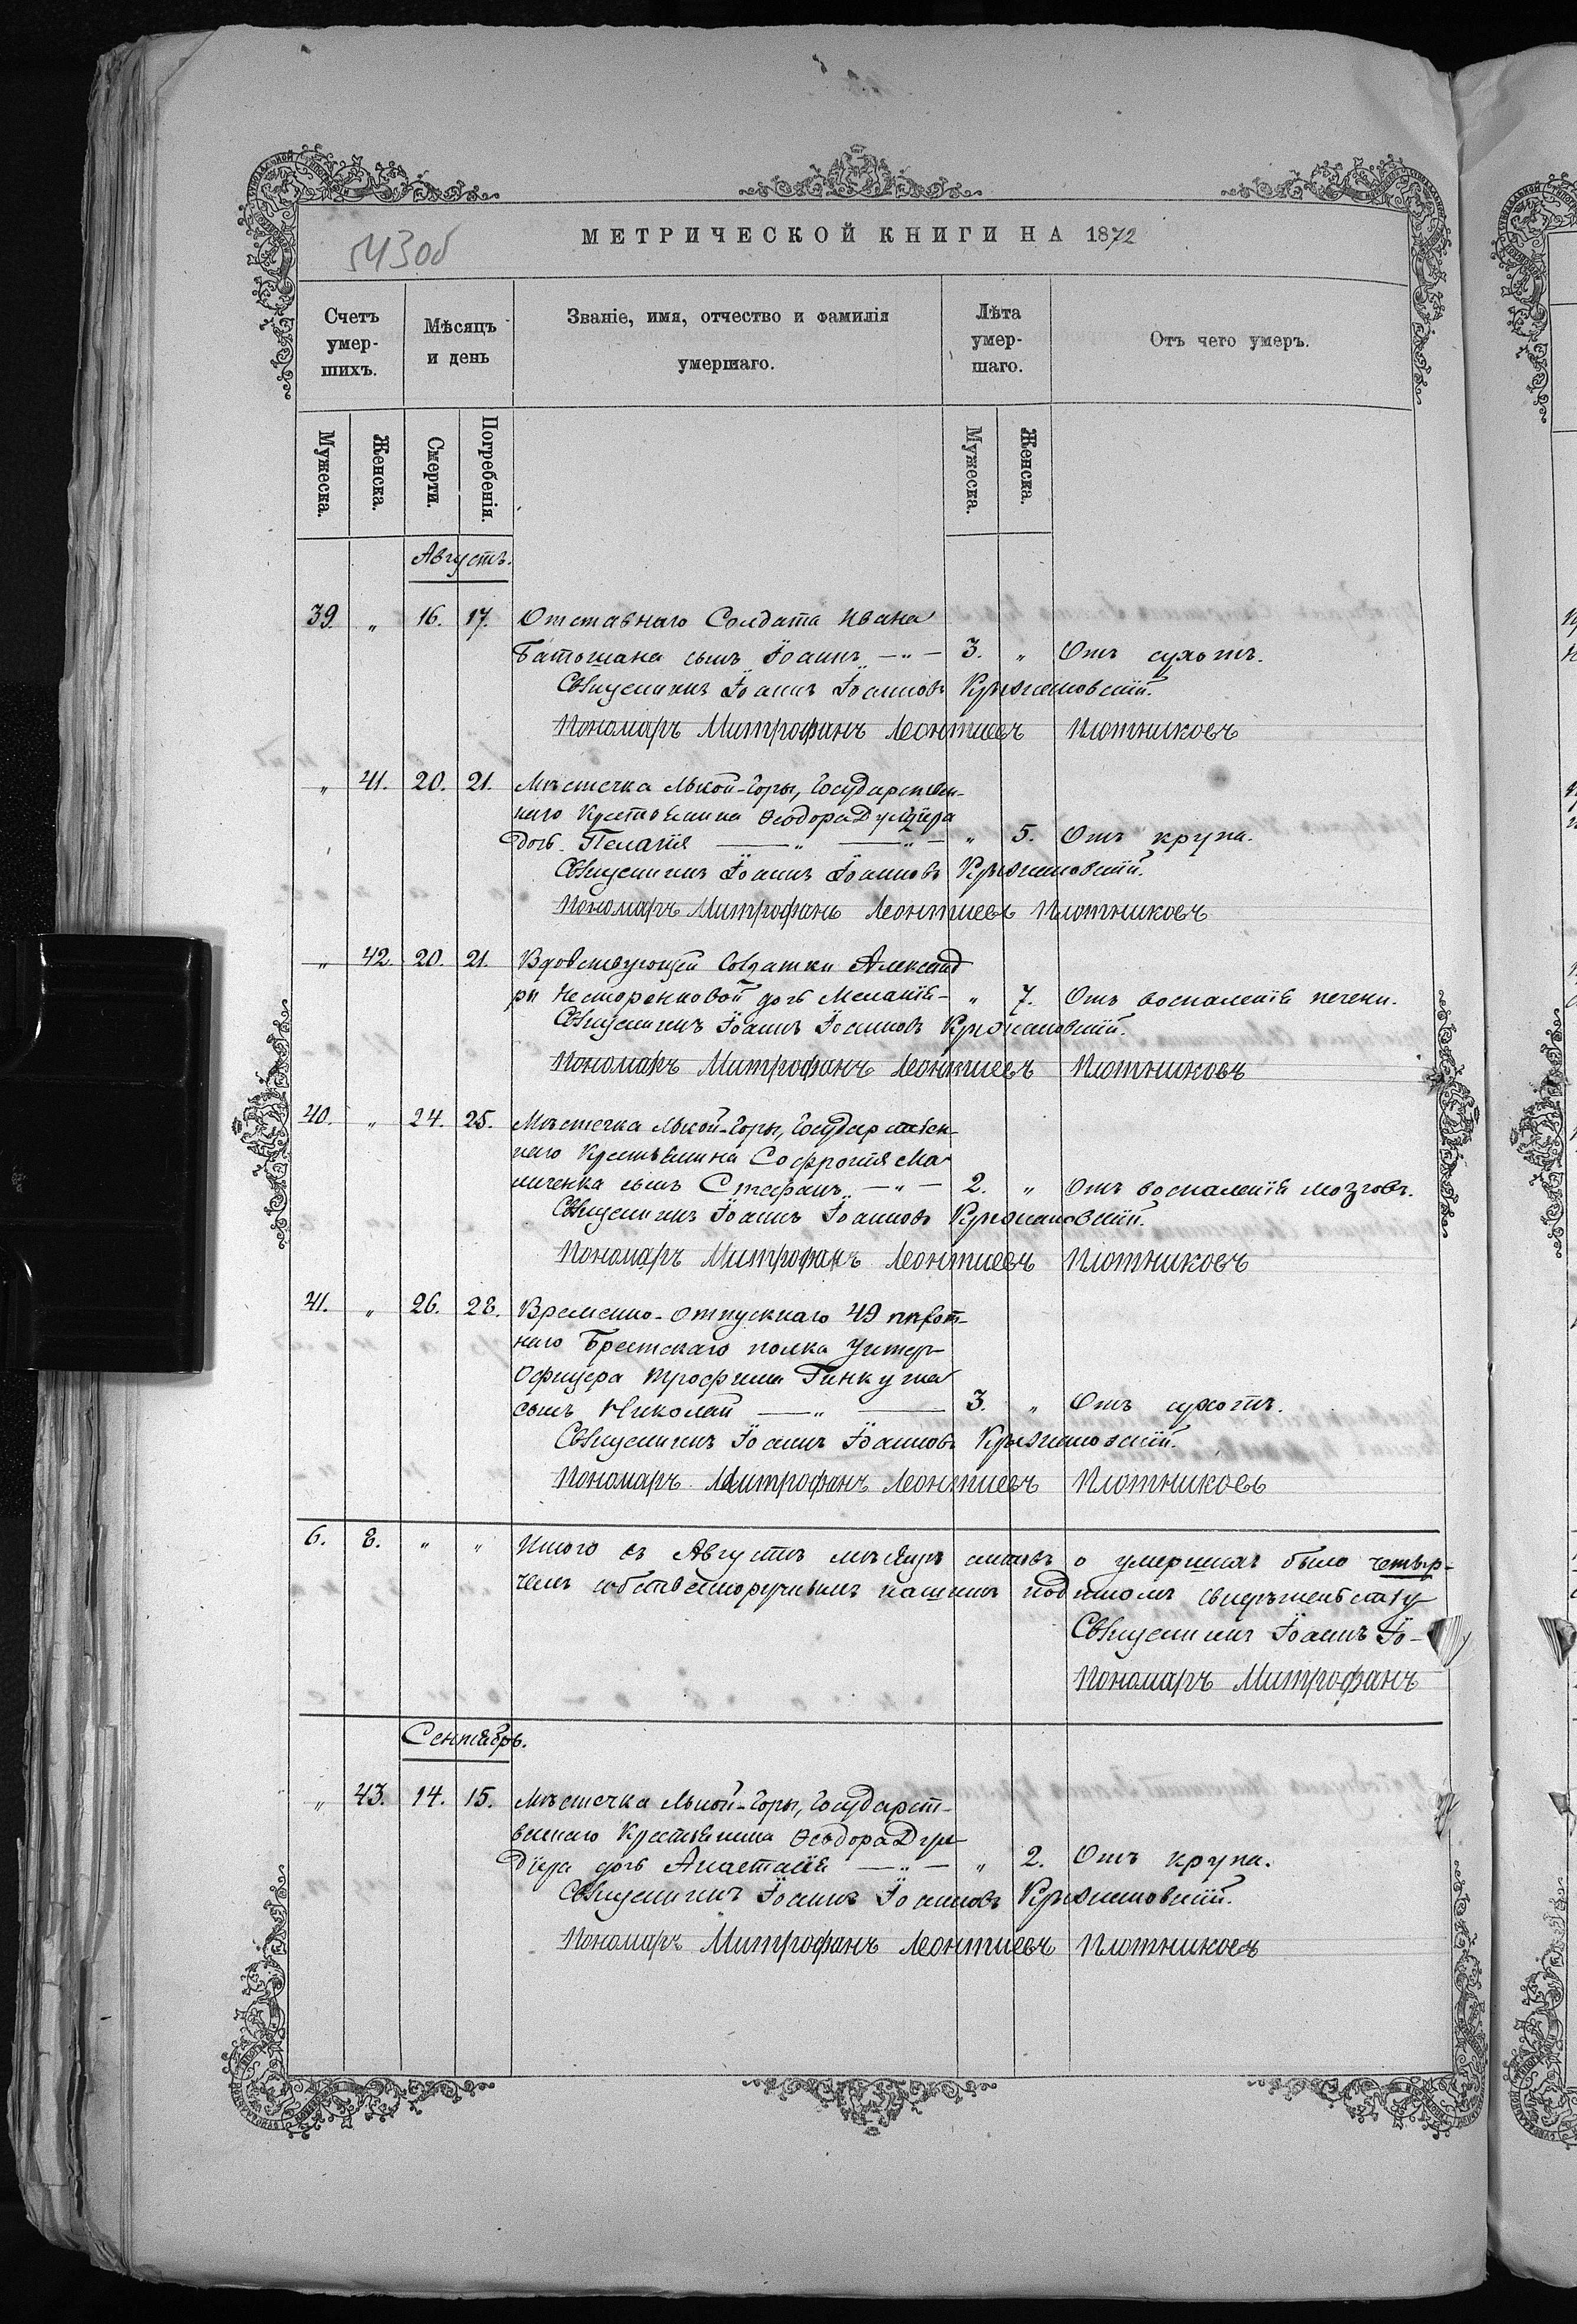 543об
МЕТРИЧЕСКОЙ КНИГИ НА 1872
Счетъ умер-шихъ.
Мѣсяцъ и день
Званіе, имя, отчество и фамилія умершаго.
Лѣта умер-шаго.
Отъ чего умеръ.
Мужеска. Женска. Смерти. Погребенія. Мужеска. Женска.
Августъ.
39. „ 16. 17. Отставнаго Солдата Ивана
Батошана сынъ Іоаннъ —„— 3. „ Отъ сухотъ.
Священникъ Іоаннъ Іоанновъ Крыжановскій.
Пономарь Митрофанъ Леонтиевъ Плотниковъ
„ 41. 20. 21. Мѣстечка Лысой-Горы, Государствен-
наго Крестьянина Ѳеодора
дочь Пелагія —„— —„— „ 5. Отъ крупа.
Священникъ Іоаннъ Іоанновъ Крыжановскій.
Пономарь Митрофанъ Леонтиевъ Плотниковъ
„ 42. 20. 21. Вдовствующей Солдатки Александ
ры Несторенковой дочь Меланія — „ 7. Отъ воспаленія печени.
Священникъ Іоаннъ Іоанновъ Крыжановскій.
Пономарь Митрофанъ Леонтиевъ Плотниковъ
40. „ 24. 25. Мѣстечка Лысой-Горы, Государствен-
наго Крестьянина Софронія Ма-
личенка сынъ Стефанъ —„— 2. „ Отъ воспаленія мозговъ.
Священникъ Іоаннъ Іоанновъ Крыжановскій.
Пономарь Митрофанъ Леонтиевъ Плотниковъ
41. „ 26. 28. Временно-отпускнаго 49 пѣхот-
наго Брестскаго полка Унтеръ-
Офицера Трофима Гинкула
сынъ Николай —„— 3. „ Отъ сухотъ.
Священникъ Іоаннъ Іоанновъ Крыжановскій.
Пономарь Митрофанъ Леонтиевъ Плотниковъ
6. 8. „ „ Итого въ Августѣ мѣсяцѣ о умершихъ было четыр-
чемъ собственноручнымъ нашимъ подписомъ
Священникъ Іоаннъ Іо-
Пономарь Митрофанъ
Сентябрь.
„ 43. 14. 15. Мѣстечка Лысой-Горы, Государст-
веннаго Крестьянина Ѳеодора
дочь Анастасія —„— „ 2. Отъ крупа.
Священникъ Іоаннъ Іоанновъ Крыжановскій.
Пономарь Митрофанъ Леонтиевъ Плотниковъ